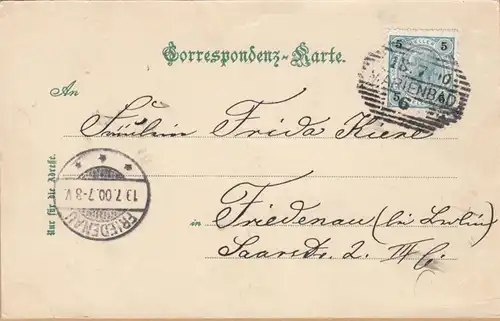 Correspondenz-Karte.
5 HELLER 5
MARIENBAD
An
Fräulein Frida
FRIEDENAU
13.7.00.7-8 V.
Nur für die Adresse.
in Friedenau (bei Berlin)
Saarstr. 2.